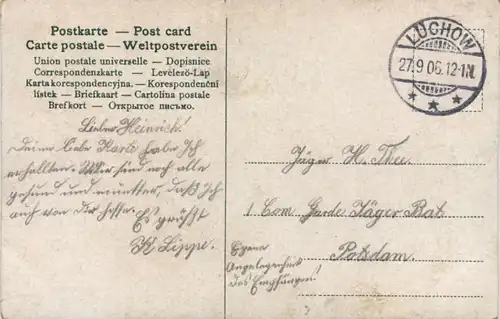 Postkarte — Post card
Carte postale — Weltpostverein
Union postale universelle — Dopisnice
Correspondenzkarte — Levelező-Lap
Karta korespondencyjna. — Korespondenční
lístek — Briefkaart — Cartolina postale
Brefkort — Открытое письмо.
LÜCHOW
27.9 06.12-1N.
Lieber Heinrich!
Deine liebe Karte habe Ich
erhalten. Wir sind noch alle
gesund und munter, daß Ich
auch von Dir hoffe.
Es grüßt
K Lippe.
Jäger H. Thee.
1. Com. Garde Jäger Bat.
Potsdam.
Eigene
Angelegenheit
des Empfängers!